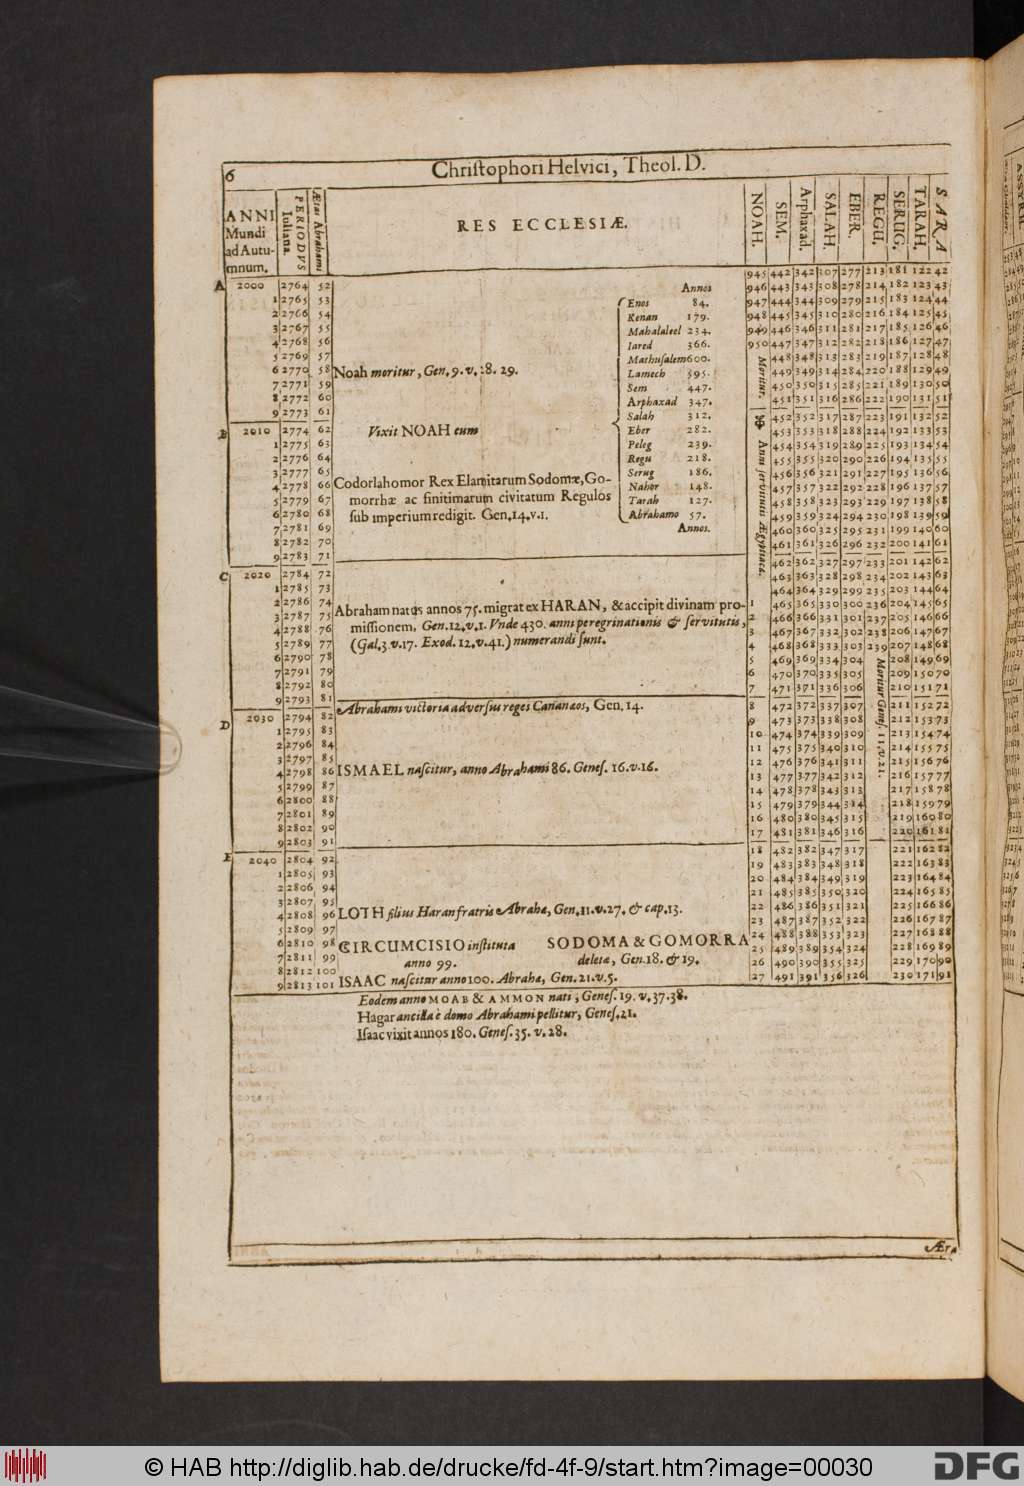 6
Christophori Helvici, Theol. D.
ANNI
Mundi
ad Autu-
mnum.
PERIODVS
Iuliana.
Ætas Abrahami
RES ECCLESIÆ.
NOAH.
SEM.
Arphaxad.
SALAH.
EBER.
REGU.
SERUG.
TARAH.
SARA
945 442 342 307 277 213 181 122 42
A 2000 2764 52 Annos 946 443 343 308 278 214 182 123 43
1 2765 53 Enos 84. 947 444 344 309 279 215 183 124 44
2 2766 54 Kenan 179. 948 445 345 310 280 216 184 125 45
3 2767 55 Mahalaleel 234. 949 446 346 311 281 217 185 126 46
4 2768 56 Iared 366. 950 447 347 312 282 218 186 127 47
5 2769 57 Mathusalem 600. 448 348 313 283 219 187 128 48
6 2770 58 Noah moritur, Gen. 9. v. 28. 29. Lamech 595. 449 349 314 284 220 188 129 49
7 2771 59 Sem 447. 450 350 315 285 221 189 130 50
8 2772 60 Arphaxad 347. 451 351 316 286 222 190 131 51
9 2773 61 Salah 312. 452 352 317 287 223 191 132 52
B 2010 2774 62 Vixit NOAH cum Eber 282. 453 353 318 288 224 192 133 53
1 2775 63 Peleg 239. 454 354 319 289 225 193 134 54
2 2776 64 Regu 218. 455 355 320 290 226 194 135 55
3 2777 65 Serug 186. 456 356 321 291 227 195 136 56
4 2778 66 Codorlahomor Rex Elamitarum Sodomæ, Go- Nahor 148. 457 357 322 292 228 196 137 57
5 2779 67 morrhæ ac finitimarum civitatum Regulos Tarah 127. 458 358 323 293 229 197 138 58
6 2780 68 sub imperium redigit. Gen. 14. v. 1. Abrahamo 57. 459 359 324 294 230 198 139 59
7 2781 69 Annos. 460 360 325 295 231 199 140 60
8 2782 70 461 361 326 296 232 200 141 61
9 2783 71 462 362 327 297 233 201 142 62
Moritur.
Anni servitutis Ægyptiaca.
C 2020 2784 72 463 363 328 298 234 202 143 63
1 2785 73 464 364 329 299 235 203 144 64
2 2786 74 Abraham natus annos 75. migrat ex HARAN, & accipit divinam pro- 1 465 365 330 300 236 204 145 65
3 2787 75 missionem, Gen. 12. v. 1. Vnde 430. anni peregrinationis & servitutis, 2 466 366 331 301 237 205 146 66
4 2788 76 (Gal. 3. v. 17. Exod. 12. v. 41.) numerandi sunt. 3 467 367 332 302 238 206 147 67
5 2789 77 4 468 368 333 303 239 207 148 68
6 2790 78 5 469 369 334 304 208 149 69
7 2791 79 6 470 370 335 305 209 150 70
8 2792 80 7 471 371 336 306 210 151 71
9 2793 81 8 472 372 337 307 211 152 72
Moritur Genes. 11. v. 21.
D 2030 2794 82 Abrahami victoria adversus reges Cananæos, Gen. 14. 9 473 373 338 308 212 153 73
1 2795 83 10 474 374 339 309 213 154 74
2 2796 84 11 475 375 340 310 214 155 75
3 2797 85 12 476 376 341 311 215 156 76
4 2798 86 ISMAEL nascitur, anno Abrahami 86. Genes. 16. v. 16. 13 477 377 342 312 216 157 77
5 2799 87 14 478 378 343 313 217 158 78
6 2800 88 15 479 379 344 314 218 159 79
7 2801 89 16 480 380 345 315 219 160 80
8 2802 90 17 481 381 346 316 220 161 81
9 2803 91 18 482 382 347 317 221 162 82
E 2040 2804 92 19 483 383 348 318 222 163 83
1 2805 93 20 484 384 349 319 223 164 84
2 2806 94 21 485 385 350 320 224 165 85
3 2807 95 22 486 386 351 321 225 166 86
4 2808 96 LOTH filius Haran fratris Abrahæ, Gen. 11. v. 27. & cap. 13. 23 487 387 352 322 226 167 87
5 2809 97 24 488 388 353 323 227 168 88
6 2810 98 CIRCUMCISIO instituta SODOMA & GOMORRA 25 489 389 354 324 228 169 89
7 2811 99 anno 99. deletæ, Gen. 18. & 19. 26 490 390 355 325 229 170 90
8 2812 100 ISAAC nascitur anno 100. Abrahæ, Gen. 21. v. 5. 27 491 391 356 326 230 171 91
9 2813 101
Eodem anno MOAB & AMMON nati, Genes. 19. v. 37. 38.
Hagar ancilla è domo Abrahami pellitur, Genes. 21.
Isaac vixit annos 180. Genes. 35. v. 28.
Æra
© HAB http://diglib.hab.de/drucke/fd-4f-9/start.htm?image=00030
DFG